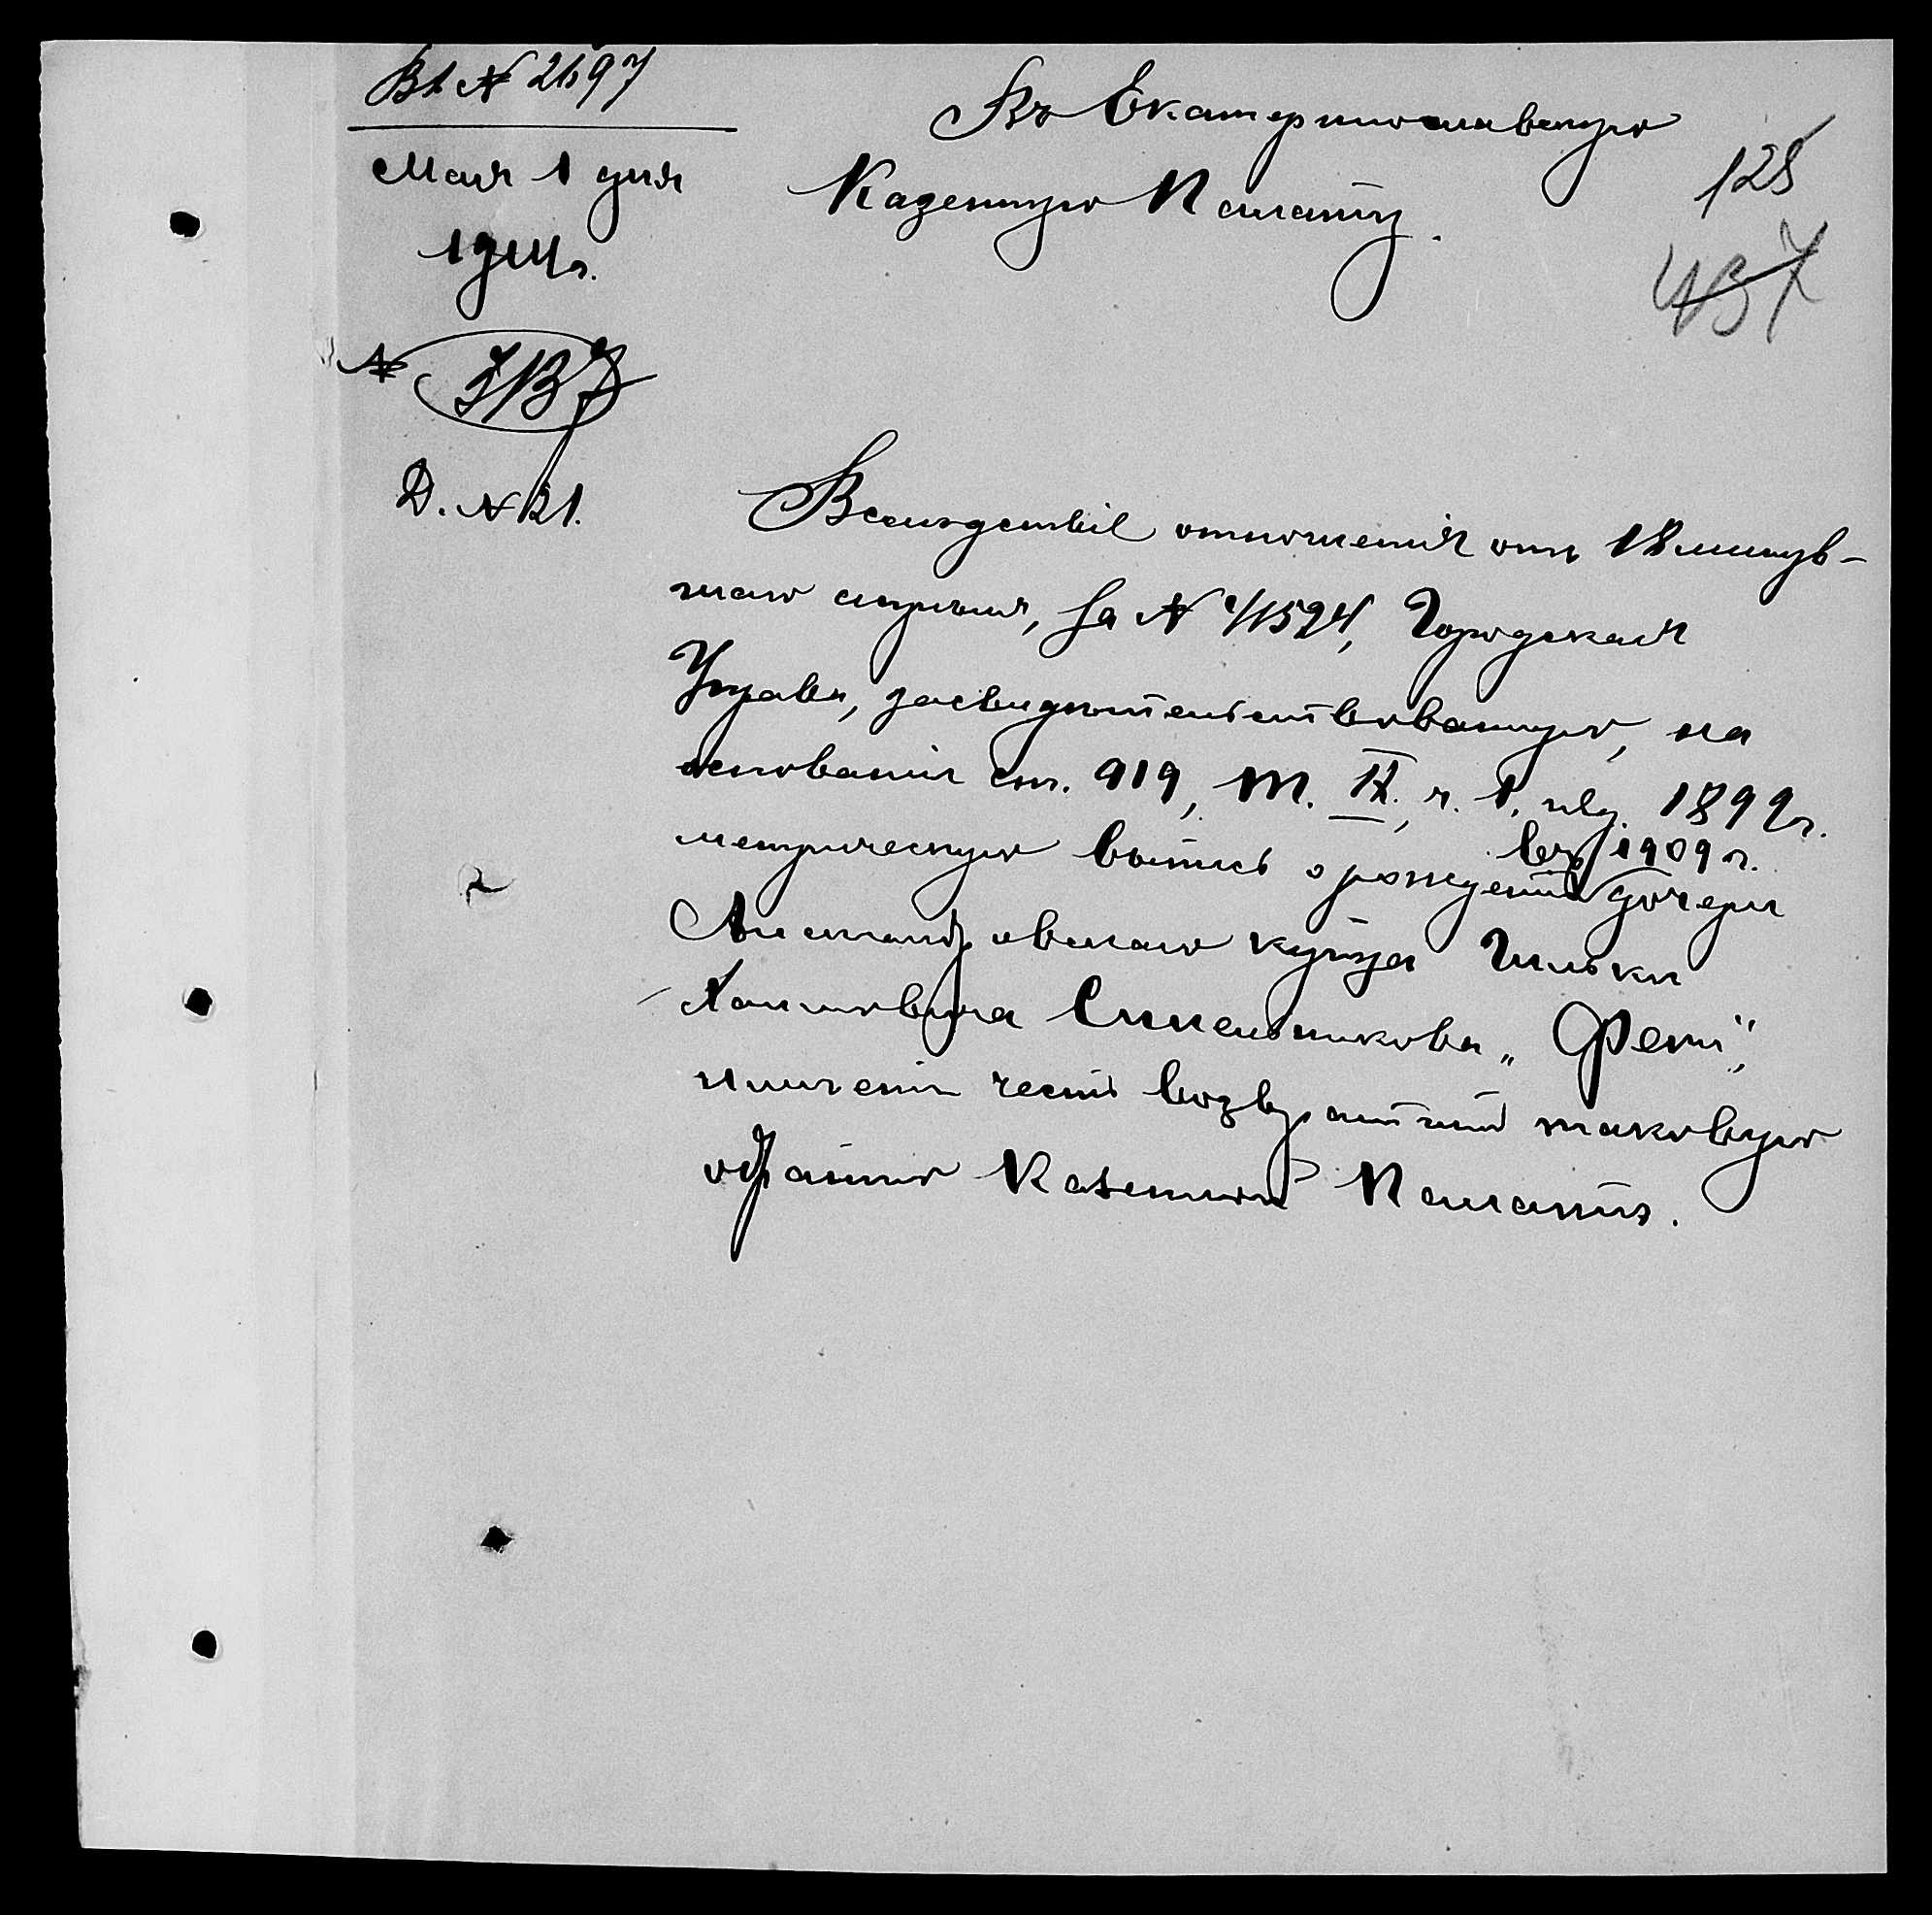 Вх № 2697
Въ Екатеринославскую
Казенную Палату.
128
437
Мая 1 дня
1911 г.
№
Д. № 21.
Вслѣдствіе отношенія отъ 18 минув-
шаго апрѣля, за № 11524, Городская
Управа, засвидѣтельствованную, на
основаніи ст. 919, т. IX, ч. 1, изд. 1899 г.
въ 1909 г.
метрическую выпись о рожденіи дочери
Александровскаго купца Гильки
Хаимовича Синельникова „Фени“,
имѣетъ честь возвратить таковую
обратно Казенной Палатѣ.